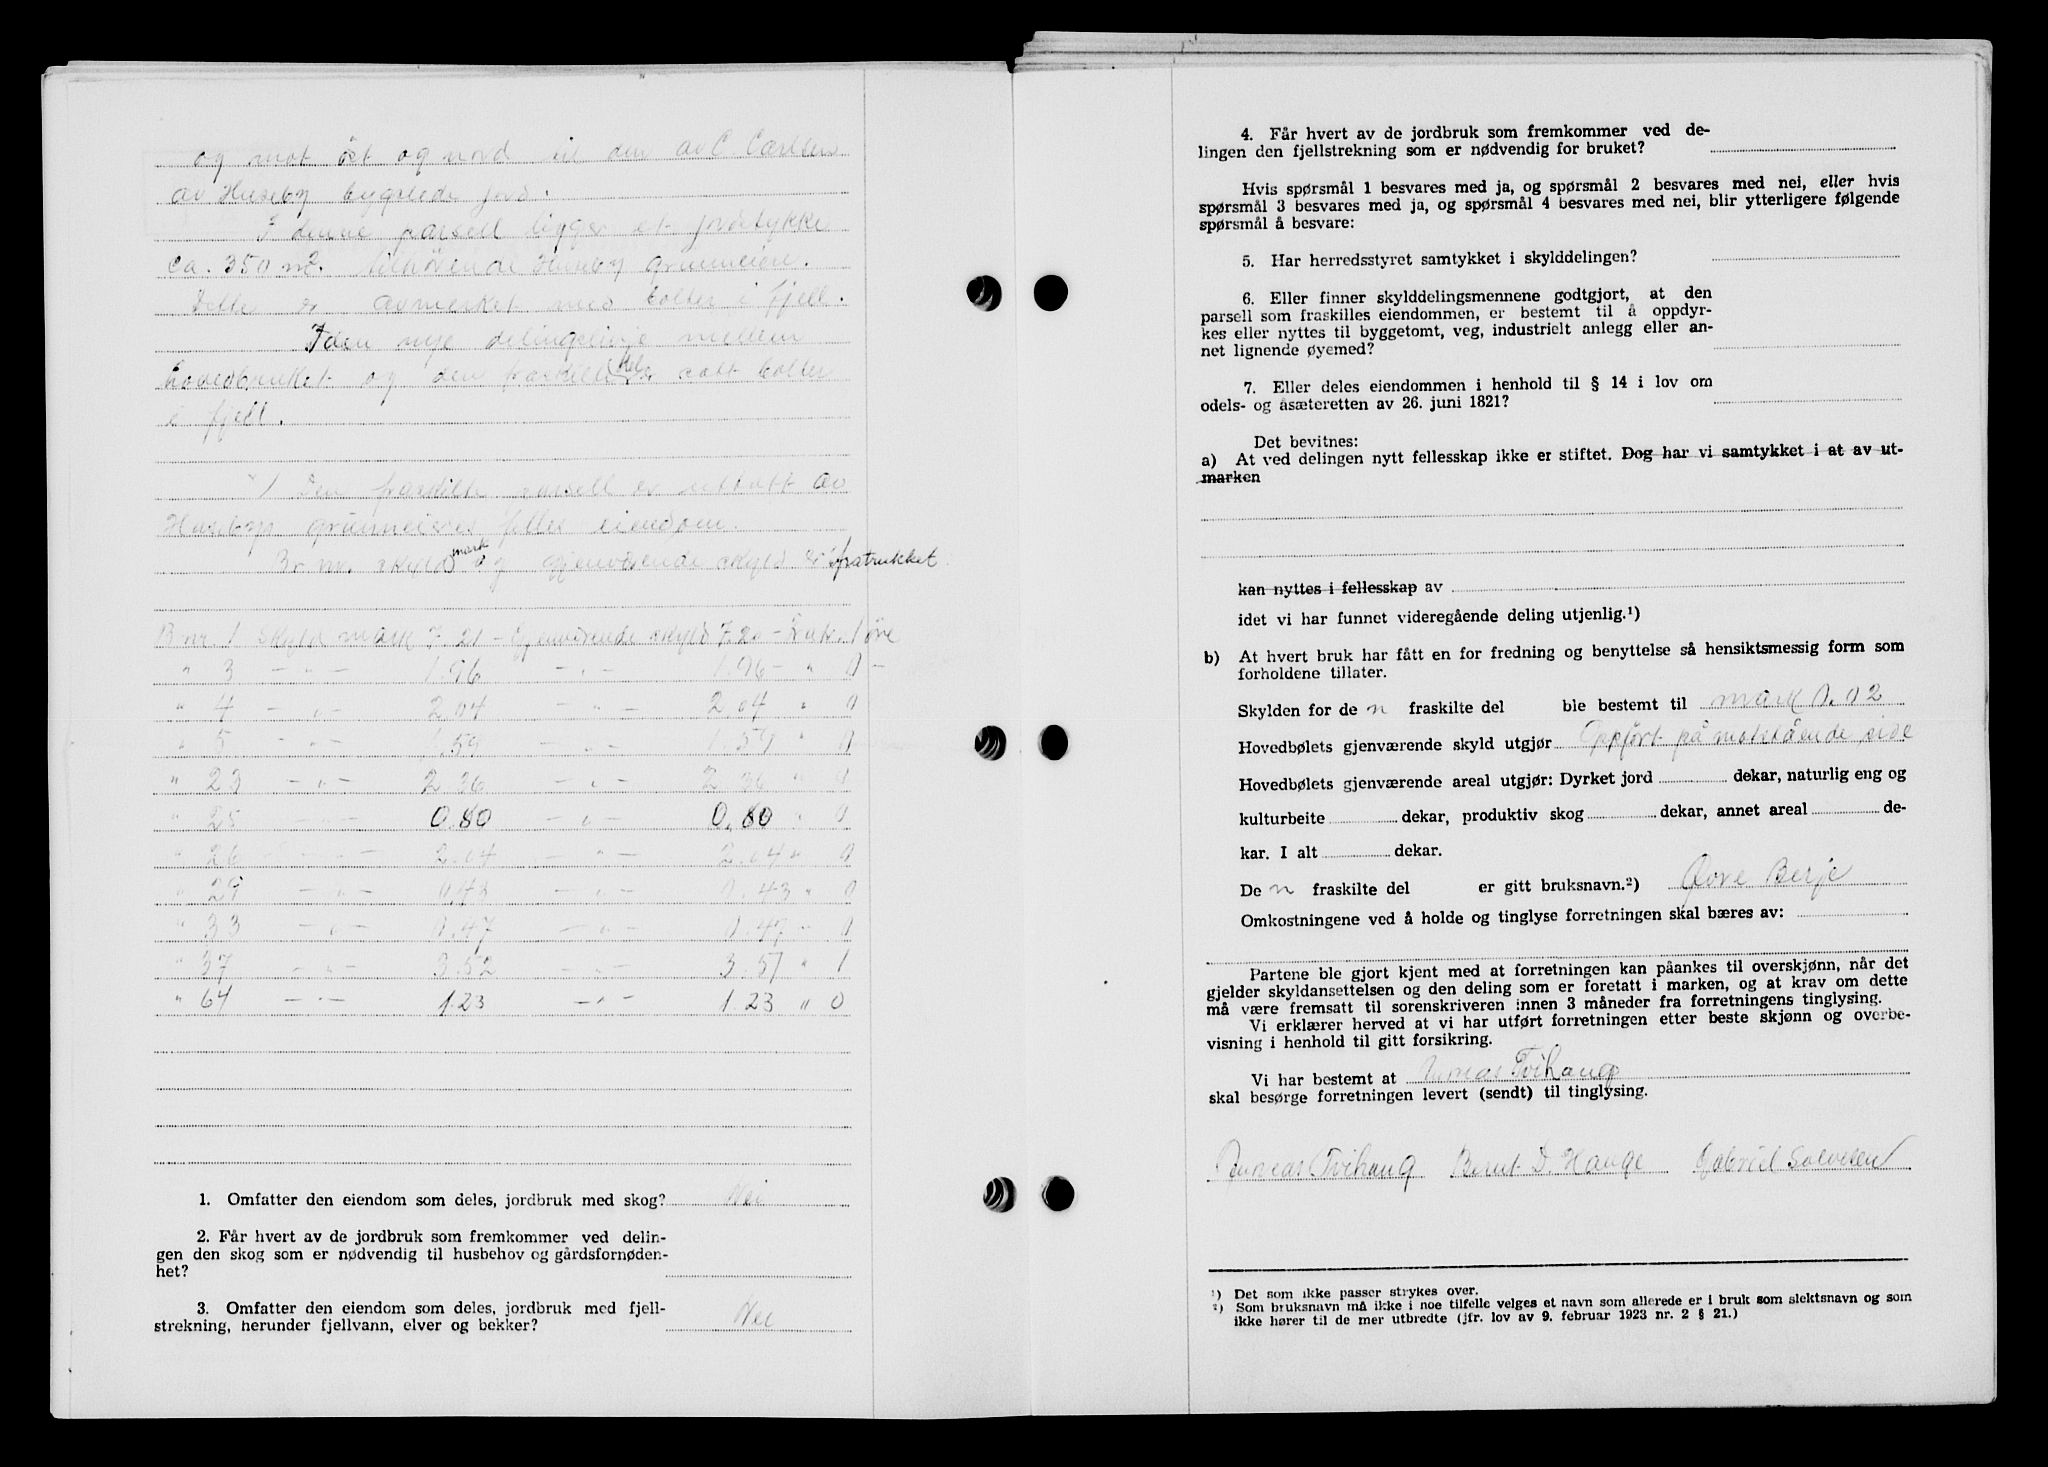 og mot øst og nord til den av C. Carlsen
av Huseby bygslede jord.
I denne parsell ligger et jordstykke
ca. 350 m². tilhørende Huseby grunneiere.
Dette er avmerket med bolter i fjell.
I den nye delingslinje mellem
hovedbruket og den fraskilte del er satt bolter
i fjell.
1) Den fraskilte parsell er uttatt av
Huseby grunneieres felles eiendom.
Br nr. skyld mark og gjenværende skyld er fratrukket.
B nr. 1 skyld mark 7.21 - Gjenværende skyld 7.20 - Fratr. 1 øre
" 3 - " - 1.96 - " - 1.96 - " 0 -
" 4 - " - 2 04 - " - 2 04 " 0
" 5 - " - 1.59 - " - 1.59 " 0
" 23 - " - 2 36 - " - 2 36 " 0
" 25 - " - 0.80 - " - 0.80 " 0
" 26 - " - 2.04 - " - 2.04 " 0
" 29 - " - 0.43 - " - 0.43 " 0
" 33 - " - 0.47 - " - 0.47 " 0
" 37 - " - 3.52 - " - 3.51 " 1
" 64 - " - 1.23 - " - 1.23 " 0
1. Omfatter den eiendom som deles, jordbruk med skog? Nei
2. Får hvert av de jordbruk som fremkommer ved delin-
gen den skog som er nødvendig til husbehov og gårdsfornøden-
het?
3. Omfatter den eiendom som deles, jordbruk med fjell-
strekning, herunder fjellvann, elver og bekker? Nei
4. Får hvert av de jordbruk som fremkommer ved de-
lingen den fjellstrekning som er nødvendig for bruket?
Hvis spørsmål 1 besvares med ja, og spørsmål 2 besvares med nei, eller hvis
spørsmål 3 besvares med ja, og spørsmål 4 besvares med nei, blir ytterligere følgende
spørsmål å besvare:
5. Har herredsstyret samtykket i skylddelingen?
6. Eller finner skylddelingsmennene godtgjort, at den
parsell som fraskilles eiendommen, er bestemt til å oppdyr-
kes eller nyttes til byggetomt, veg, industrielt anlegg eller an-
net lignende øyemed?
7. Eller deles eiendommen i henhold til § 14 i lov om
odels- og åsæteretten av 26. juni 1821?
Det bevitnes:
a) At ved delingen nytt fellesskap ikke er stiftet. Dog har vi samtykket i at av ut-
marken
kan nyttes i fellesskap av
idet vi har funnet videregående deling utjenlig.¹)
b) At hvert bruk har fått en for fredning og benyttelse så hensiktsmessig form som
forholdene tillater.
Skylden for de n fraskilte del ble bestemt til mark 0.02
Hovedbølets gjenværende skyld utgjør Oppført på motstående side
Hovedbølets gjenværende areal utgjør: Dyrket jord dekar, naturlig eng og
kulturbeite dekar, produktiv skog dekar, annet areal de-
kar. I alt dekar.
De n fraskilte del er gitt bruksnavn.²) Øvre Berje
Omkostningene ved å holde og tinglyse forretningen skal bæres av:
Partene ble gjort kjent med at forretningen kan påankes til overskjønn, når det
gjelder skyldansettelsen og den deling som er foretatt i marken, og at krav om dette
må være fremsatt til sorenskriveren innen 3 måneder fra forretningens tinglysing.
Vi erklærer herved at vi har utført forretningen etter beste skjønn og overbe-
visning i henhold til gitt forsikring.
Vi har bestemt at Andreas Tvihaug
skal besørge forretningen levert (sendt) til tinglysing.
Andreas Tvihaug Bernt D. Hauge Gabriel Salvesen
¹) Det som ikke passer strykes over.
²) Som bruksnavn må ikke i noe tilfelle velges et navn som allerede er i bruk som slektsnavn og som
ikke hører til de mer utbredte (jfr. lov av 9. februar 1923 nr. 2 § 21.)